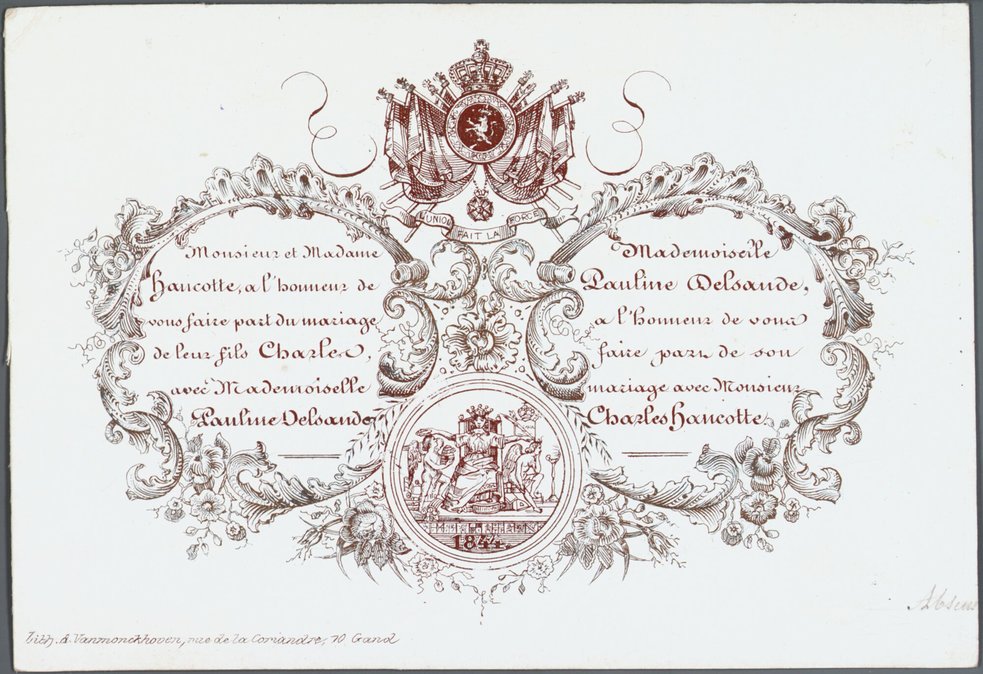 L'UNION FAIT LA FORCE
Monsieur et Madame
Hancotte, a l'honneur de
vous faire part du mariage
de leur fils Charles,
avec Mademoiselle
Pauline Delsande
Mademoiselle
Pauline Delsande,
a l'honneur de vous
faire part de son
mariage avec Monsieur
Charles Hancotte.
1844.
Lith. A. Vanmonckhoven, rue de la Comandre, 10 Gand